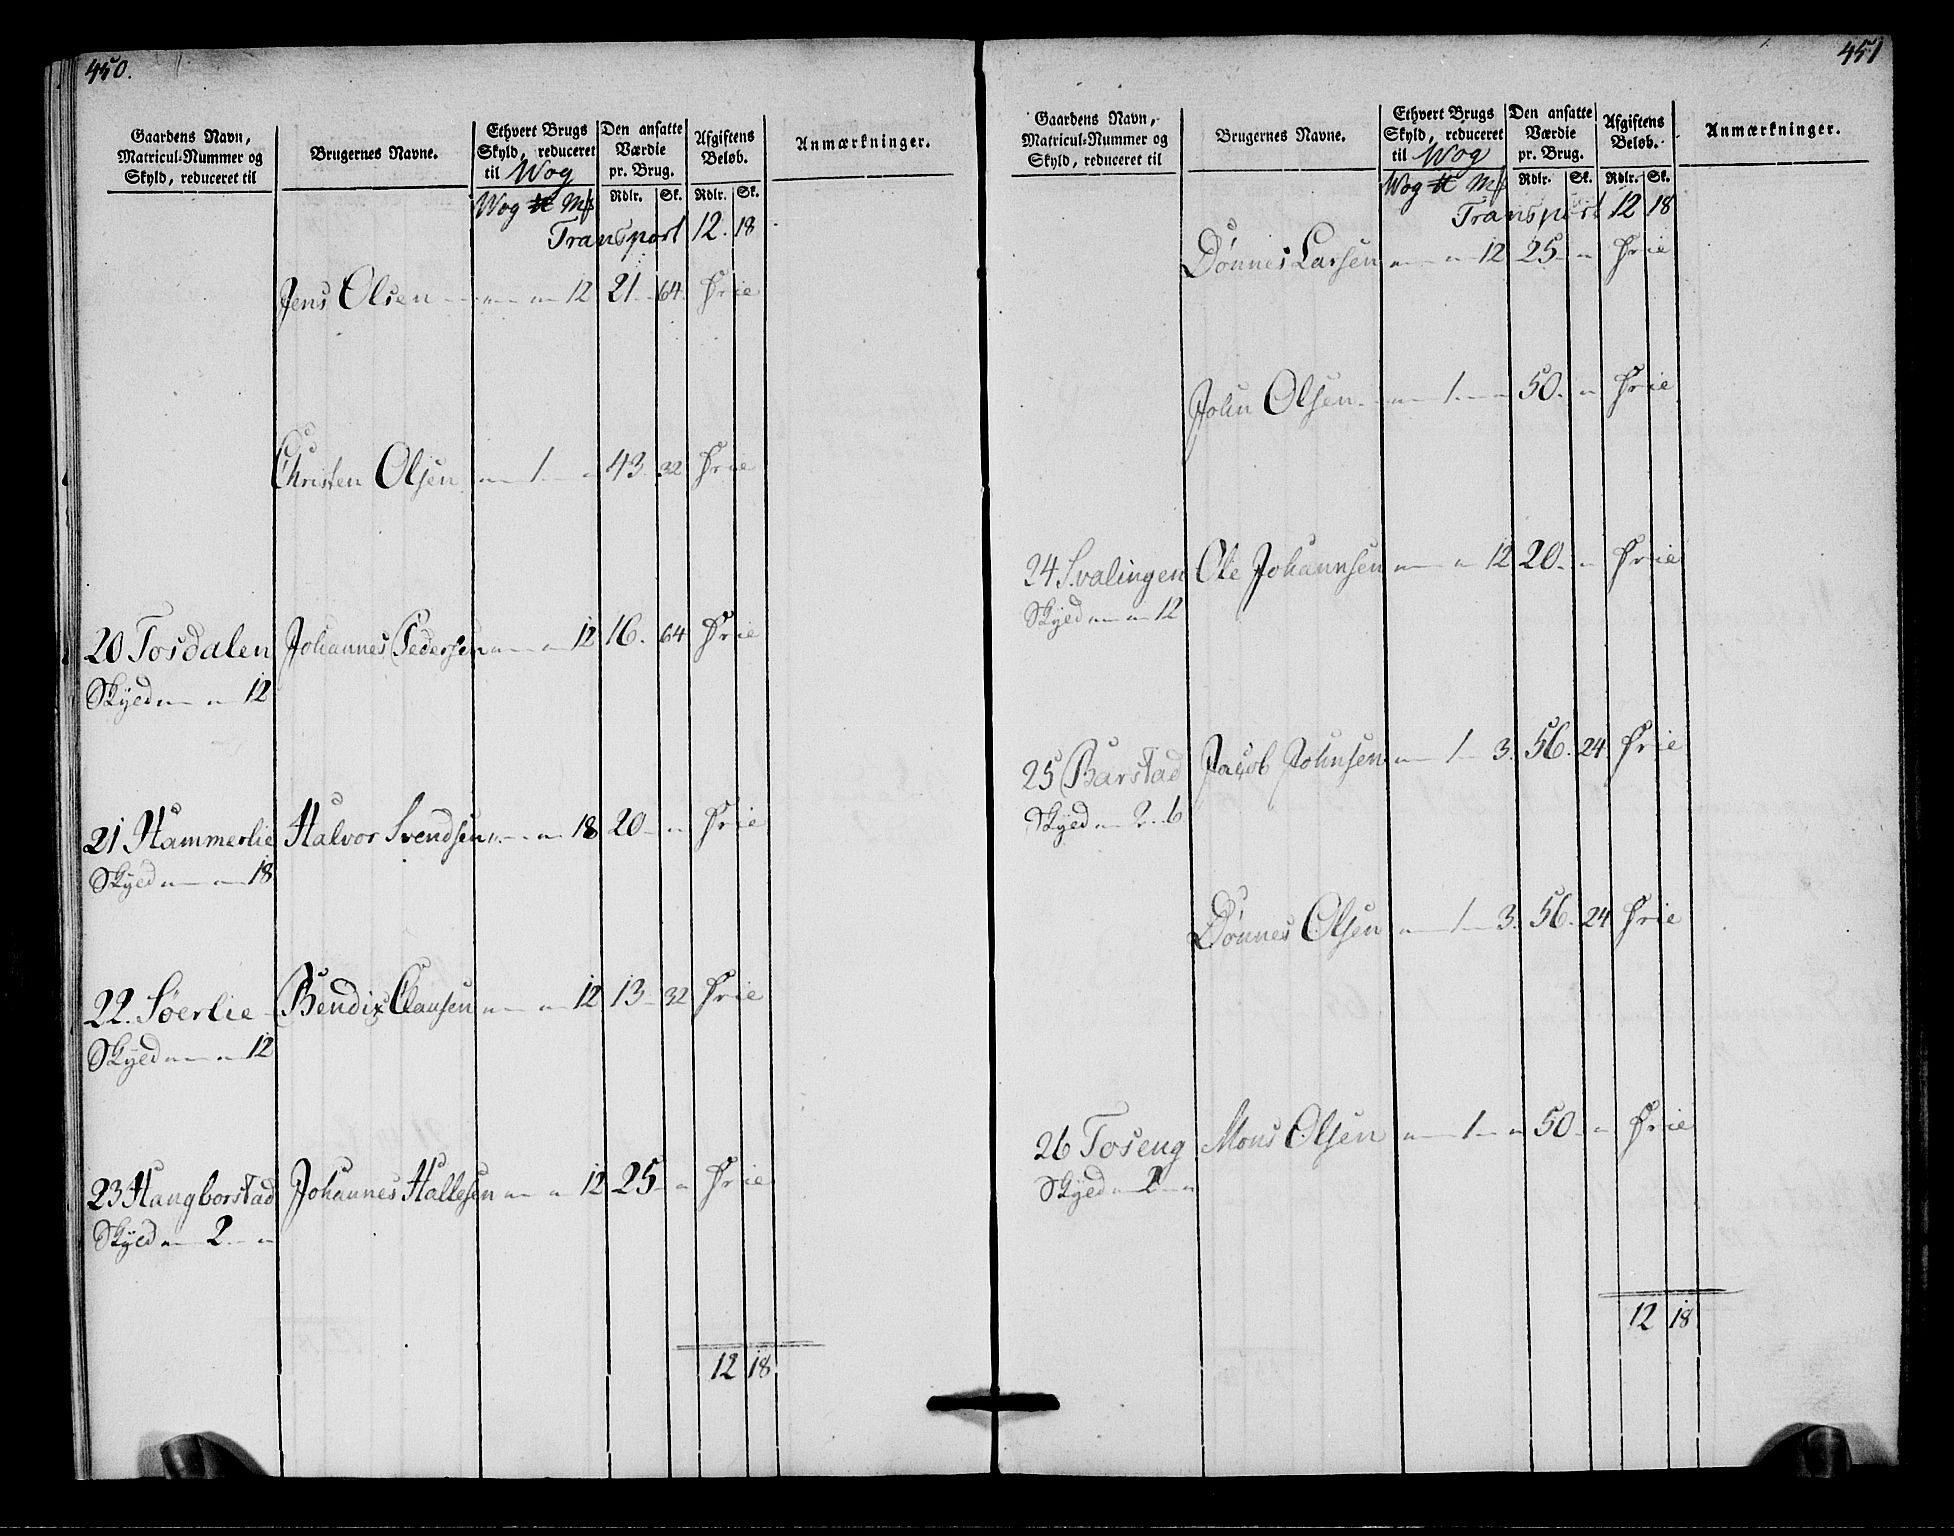 450.
Gaardens Navn, Matricul-Nummer og Skyld, reduceret til | Brugernes Navne. | Ethvert Brugs Skyld, reduceret til Wog | Den ansatte Værdie pr. Brug. | Afgiftens Beløb. | Anmærkninger.
Wog ℔ Mk | Rdlr. | Sk. | Rdlr. | Sk.
Transport 12. 18
Jens Olsen — " — " 12 21 64 Frie
Christen Olsen " 1 " 43 32 Frie
20 Tosdalen Johannes Pedersen " — " 12 16. 64 Frie
Skyld " — " 12
21 Hammerlie Halvor Svendsen " — " 18 20 " Frie
Skyld " — " 18
22. Søerlie Bendix Clausen " — " 12 13 32 Frie
Skyld " — " 12
23 Haugborstad Johannes Hallesen " — " 12 25 " Frie
Skyld " 2 "
12 18
451
Gaardens Navn, Matricul-Nummer og Skyld, reduceret til | Brugernes Navne. | Ethvert Brugs Skyld, reduceret til Wog | Den ansatte Værdie pr. Brug. | Afgiftens Beløb. | Anmærkninger.
Wog ℔ Mk | Rdlr. | Sk. | Rdlr. | Sk.
Transport 12 18
Dønnes Larsen " — " 12 25 " Frie
John Olsen " 1 " 50. " Frie
24 Svalingen Ole Johannsen " — " 12 20. " Frie
Skyld " — " 12
25 Barstad Jacob Johnsen " 1 3. 56. 24 Frie
Skyld " 2. 6
Dønnes Olsen " 1 3. 56. 24 Frie
26 Toseng Mons Olsen " 1 " 50 " Frie
Skyld " 2 "
12 18